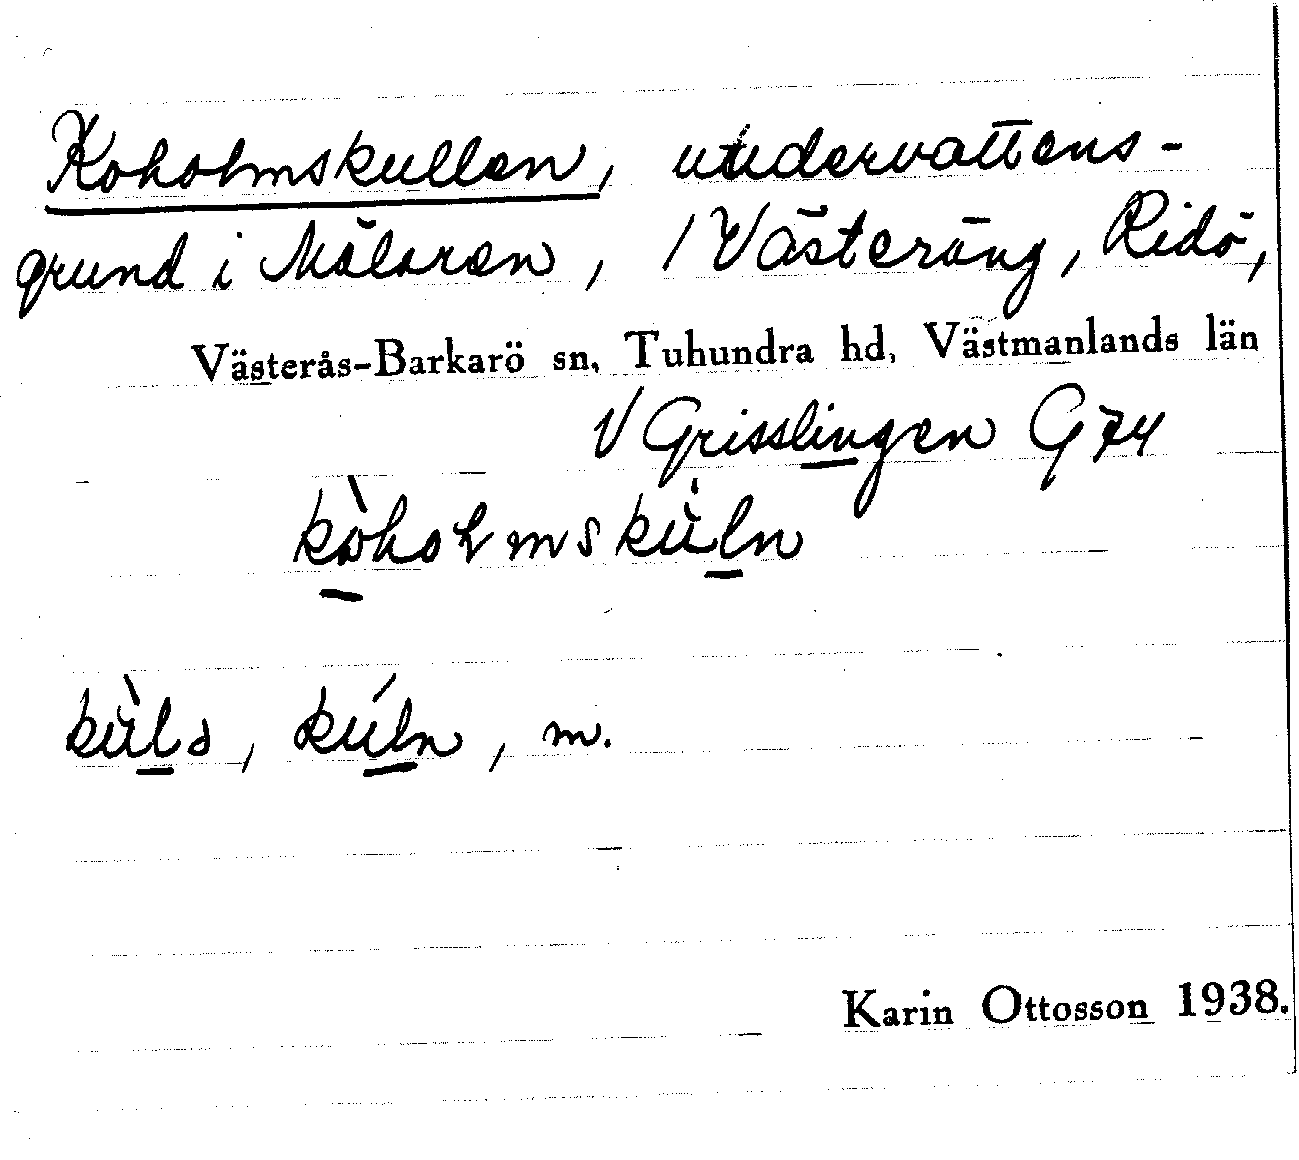 Koholmskullen, undervattens-
grund i Mälaren, / Västeräng, Ridö,
Västerås-Barkarö sn, Tuhundra hd, Västmanlands län
V Grisslingen G74
kòholmskùln
kùls, kúln, m.
Karin Ottosson 1938.